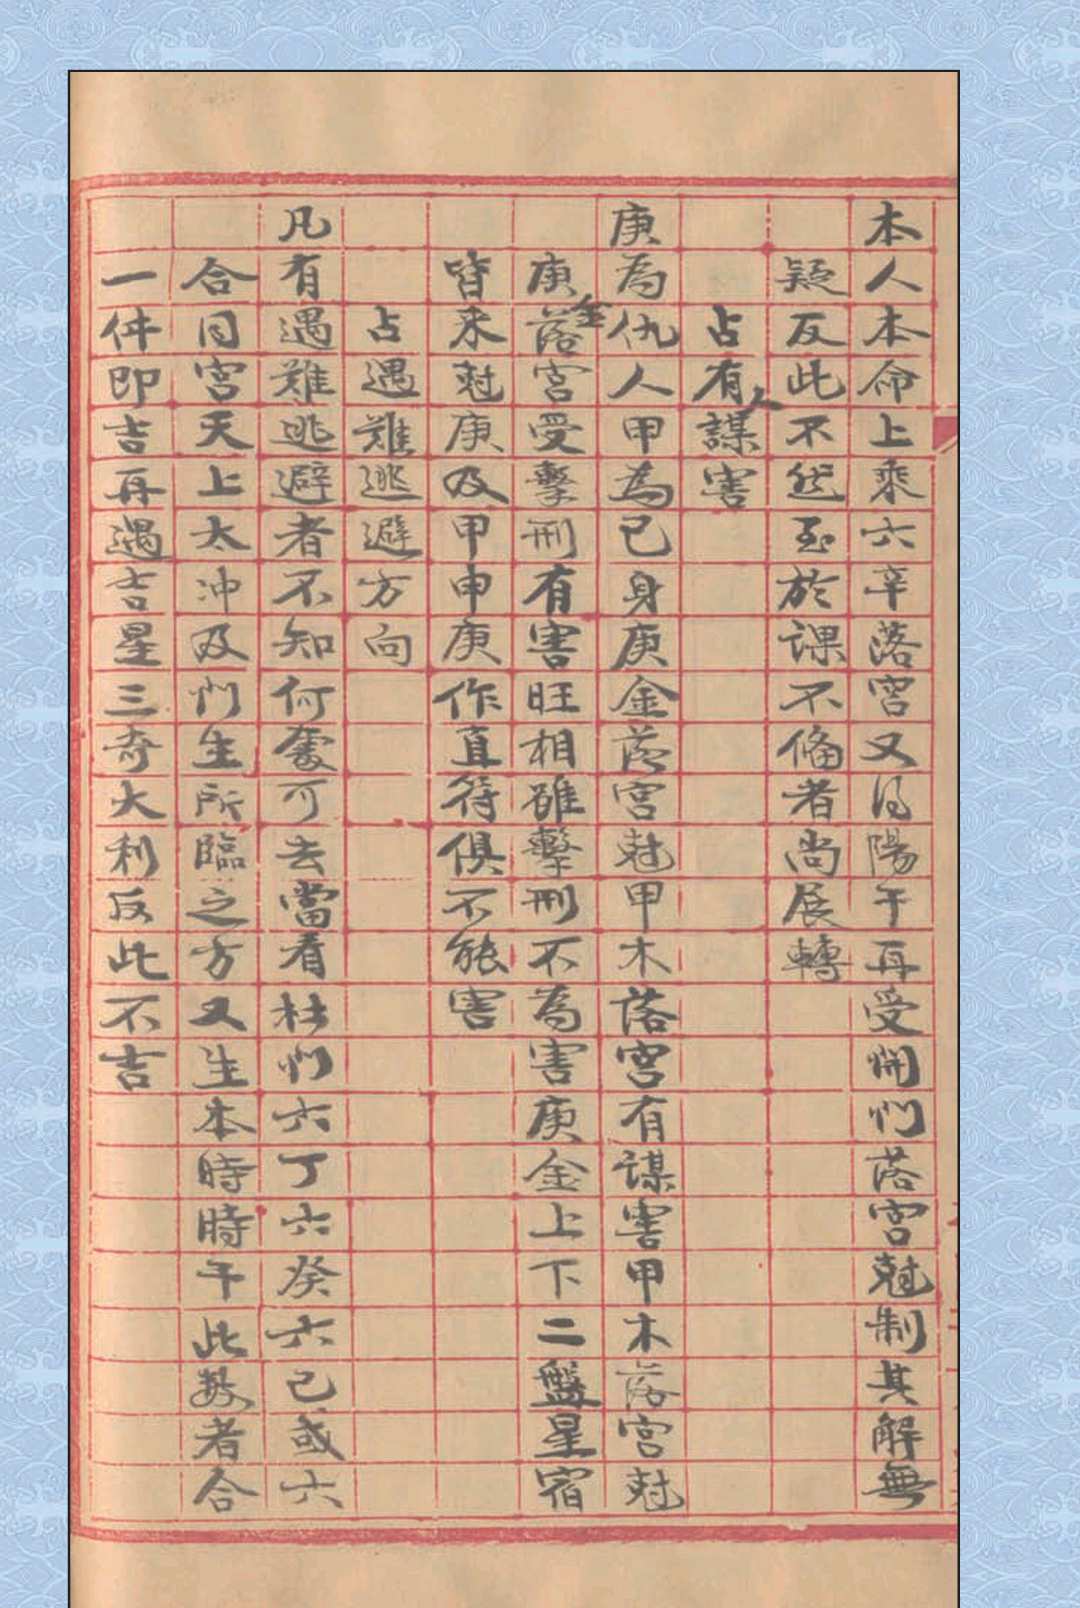 本人本命上乘六辛落宮又得陽干再受開门落宮尅制其解無
疑反此不然至於課不俻者尚展轉
占有人謀害
庚為仇人甲為己身庚金落宮尅甲木落宮有謀害甲木落宮尅
庚金落宮受擊刑有害旺相雖擊刑不為害庚金上下二盤星宿
皆来尅庚及甲申庚作直符俱不能害
占遇難逃避方向
凡有遇難逃避者不知何處可去當看杜们六丁六癸六己或六
合同宮天上太冲及门生所臨之方又生本時時干此数者合
一件即吉再遇吉星三奇大利反此不吉